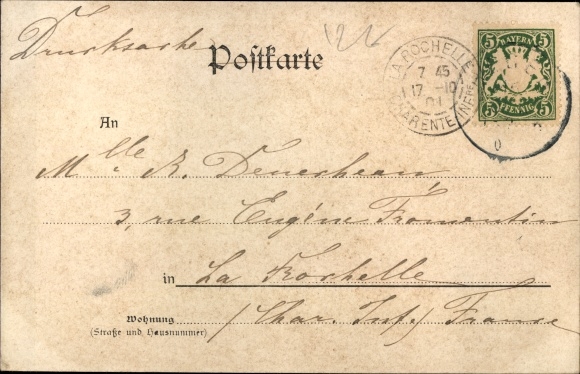 Drucksache
Postkarte
12
LA ROCHELLE
7 45
17 -10
01
CHARENTE INFRE
5 BAYERN 5
5 PFENNIG 5
An
Mlle R. Denechean,
3, rue Eugène Fromentin
in La Rochelle
Wohnung (Char. Inf.) France
(Straße und Hausnummer)